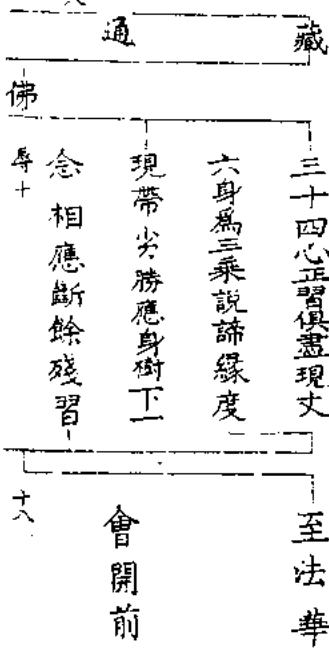 藏
通
佛
三十四心正習俱盡現丈
六身爲三乘說諦緣度
現帶劣勝應身樹下一
念相應斷餘殘習
辱十
至法華
會開前
十八